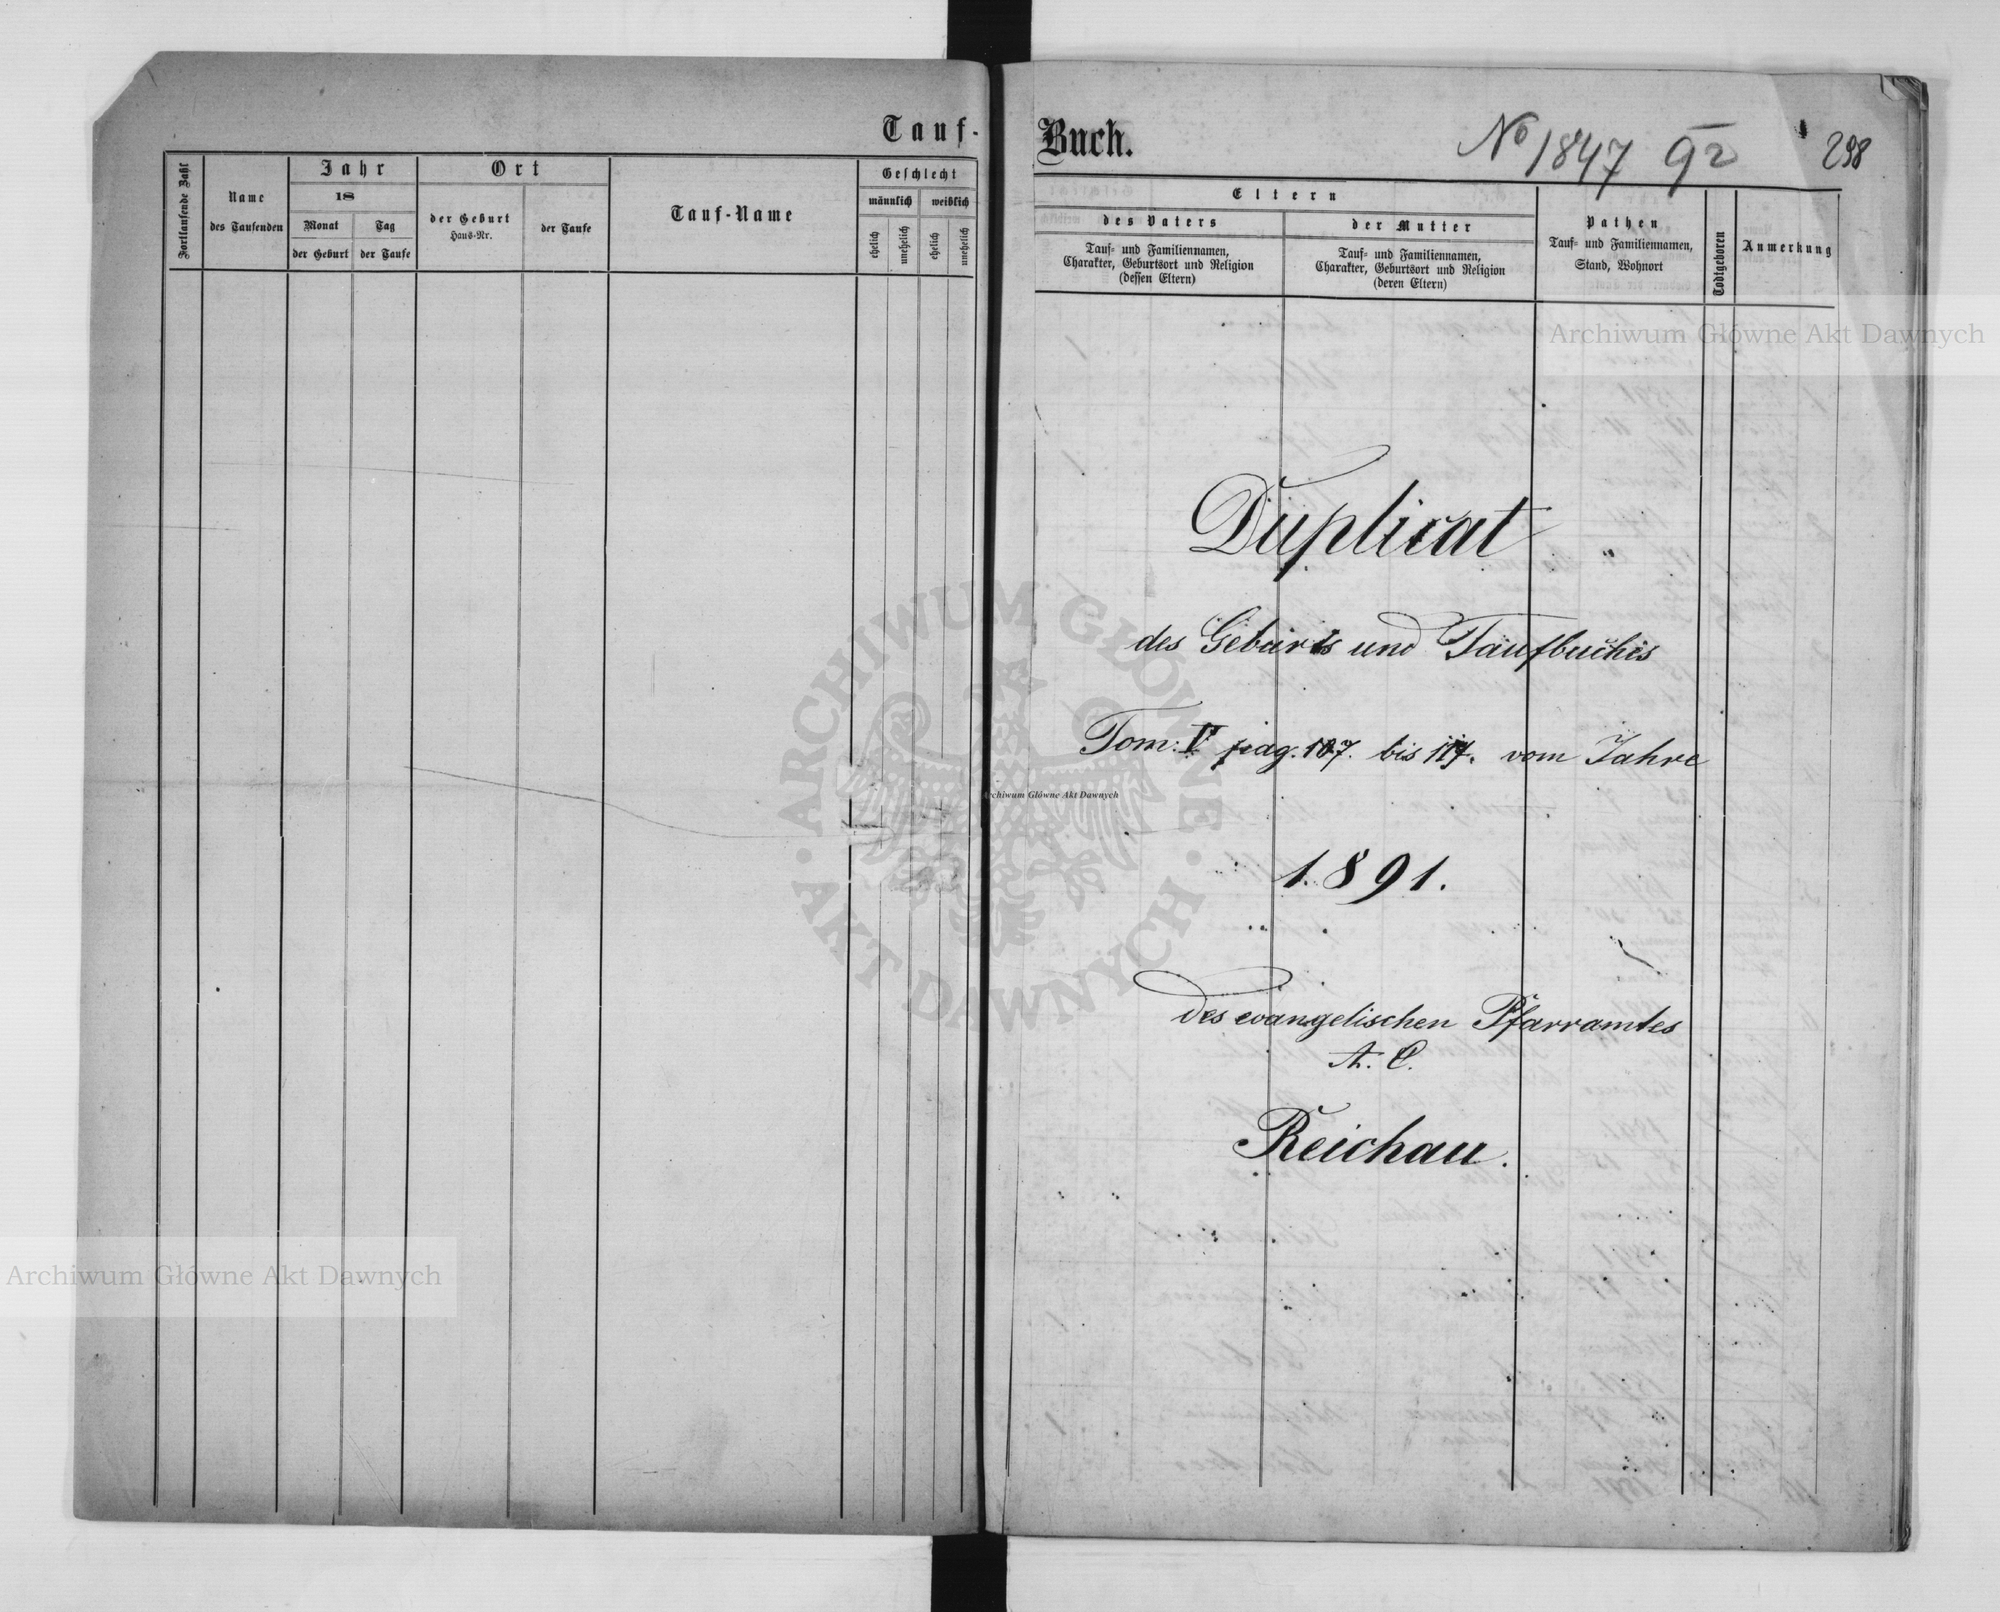 Tauf-
Fortlaufende Zahl
Name
des Taufenden
Jahr
18
Monat
Tag
der Geburt
der Taufe
Ort
der Geburt
Haus-Nr.
der Taufe
Tauf-Name
Geschlecht
männlich
weiblich
ehelich
unehelich
ehelich
unehelich
Buch.
No 1847
92
298
Eltern
des Vaters
Tauf- und Familiennamen,
Charakter, Geburtsort und Religion
(dessen Eltern)
der Mutter
Tauf- und Familiennamen,
Charakter, Geburtsort und Religion
(deren Eltern)
Pathen
Tauf- und Familiennamen,
Stand, Wohnort
Todtgeboren
Anmerkung
Duplicat
des Geburts und Taufbuches
Tom: V pag. 107. bis 117. vom Jahre
1891.
des evangelischen Pfarramtes
A. C.
Reichau.
Archiwum Główne Akt Dawnych
Archiwum Główne Akt Dawnych
Archiwum Główne Akt Dawnych
ARCHIWUM GŁÓWNE
AKT DAWNYCH